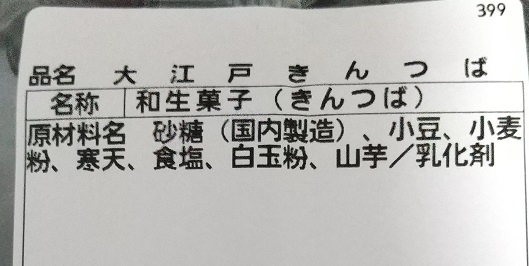 399
品名 大江戸きんつば
名称 和生菓子(きんつば)
原材料名 砂糖(国内製造)、小豆、小麦
粉、寒天、食塩、白玉粉、山芋/乳化剤